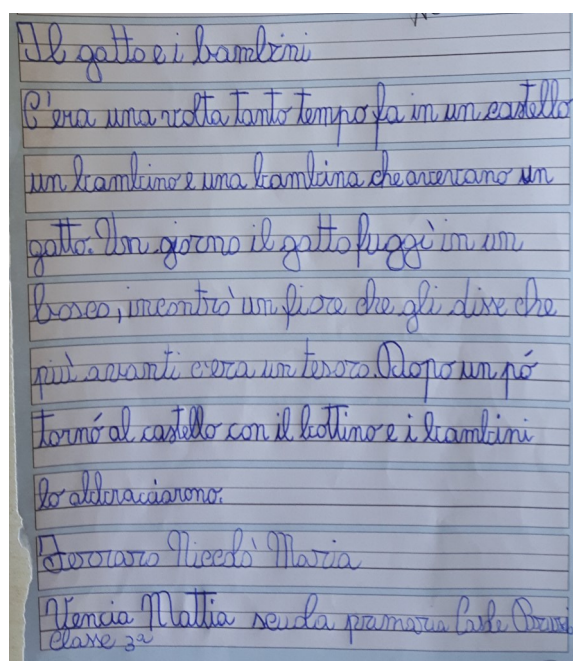 Il gatto e i bambini
C'era una volta tanto tempo fa in un castello
un bambino e una bambina che avevano un
gatto. Un giorno il gatto fuggì in un
bosco, incontrò un fiore che gli disse che
più avanti c'era un tesoro. Dopo un pó
tornó al castello con il bottino e i bambini
lo abbracciarono.
Ferraro Niccolò Maria
Vencia Mattia scuola primaria
Classe 3ª